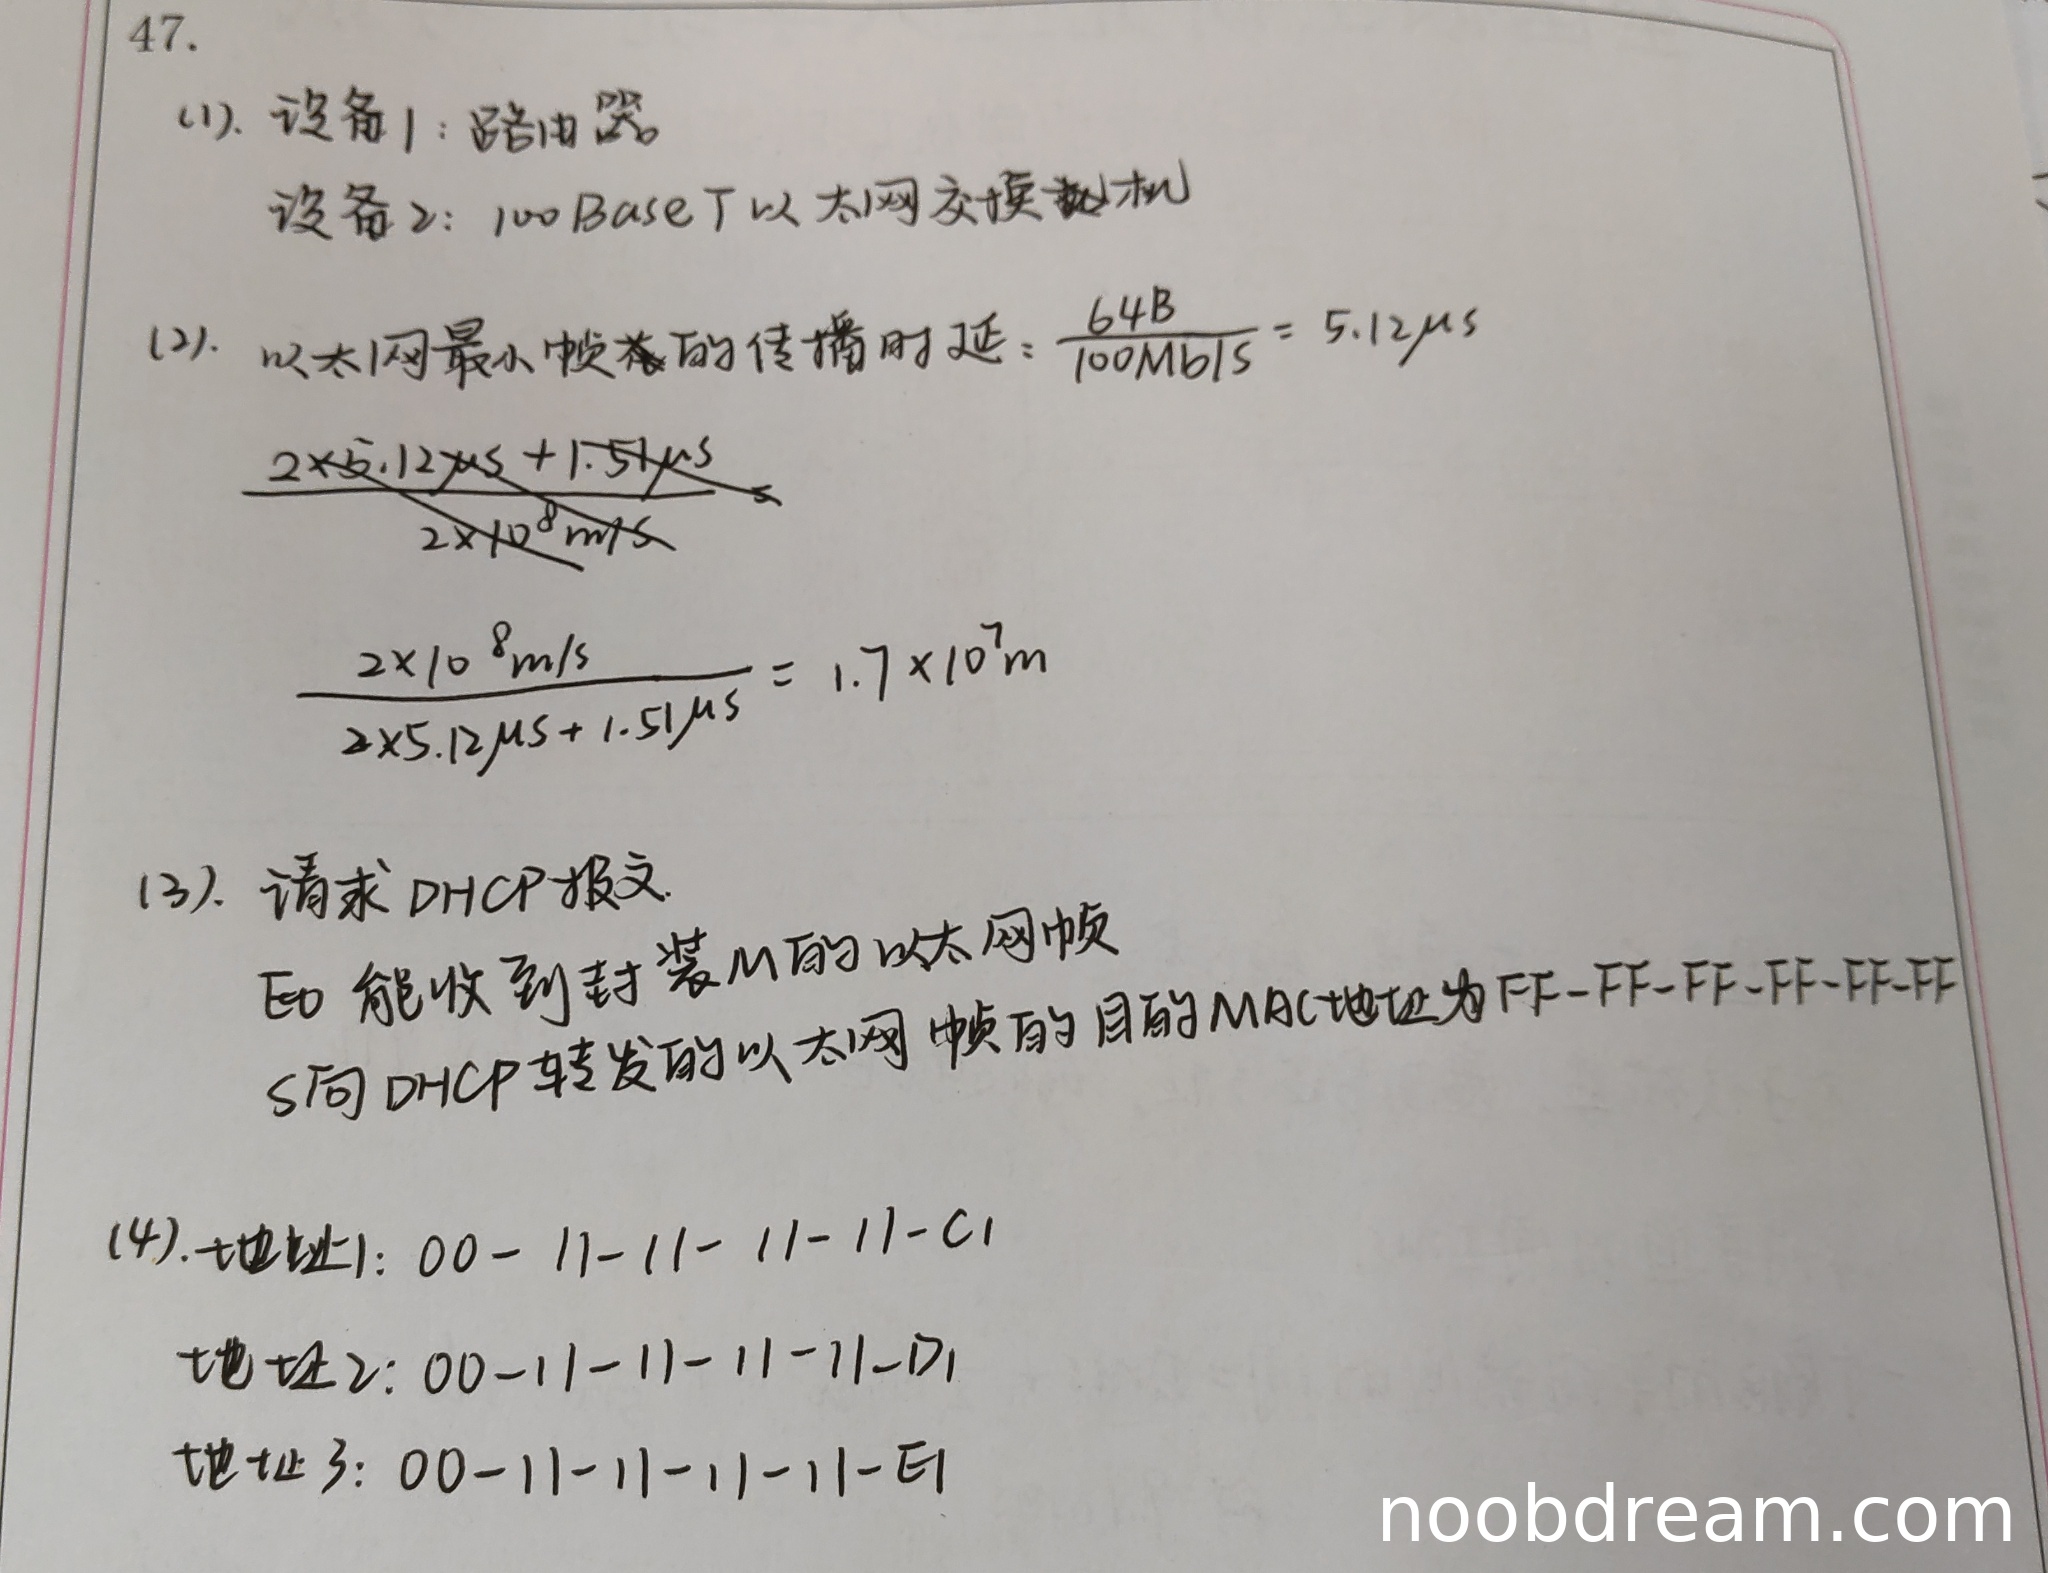 47.
(1). 设备1：路由器
设备2：100BaseT以太网交换机
(2). 以太网最小帧的传播时延：64B/100Mb/s = 5.12μs
2×5.12μs+1.51μs
2×10^8m/s
2×10^8m/s / 2×5.12μs+1.51μs = 1.7×10^7m
(3). 请求DHCP报文.
E0 能收到封装M的以太网帧
S向DHCP转发的以太网帧的目的MAC地址为FF-FF-FF-FF-FF-FF
(4). 地址1：00-11-11-11-11-C1
地址2：00-11-11-11-11-D1
地址3：00-11-11-11-11-E1
noobdream.com